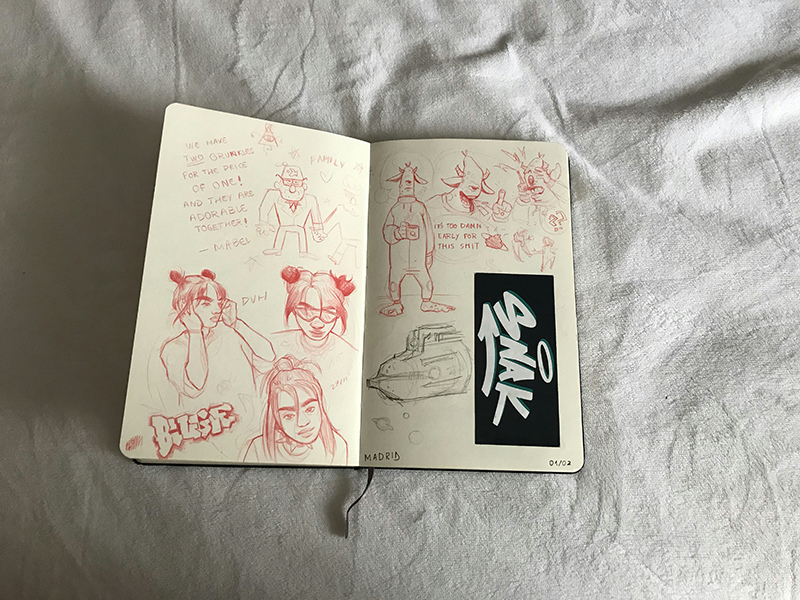 WE HAVE
TWO GRUNKLES
FOR THE PRICE
OF ONE!
AND THEY ARE
ADORABLE
TOGETHER!
— MABEL
FAMILY
DUH
BILLIE
IT'S TOO DAMN
EARLY FOR
THIS SHIT
??
SNAK
MADRID
01/02